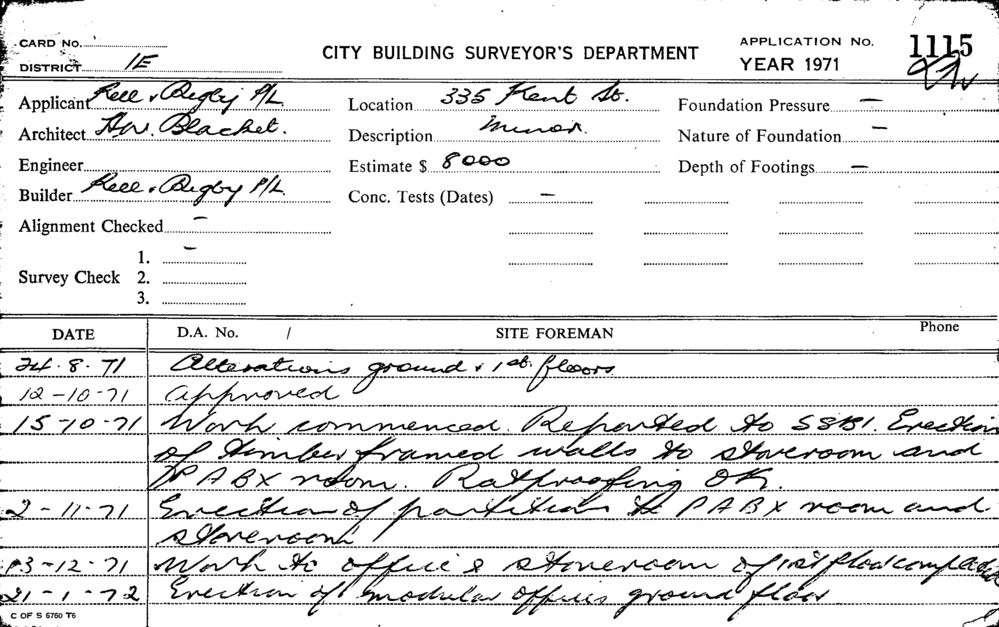 CARD No.
DISTRICT 1E
CITY BUILDING SURVEYOR'S DEPARTMENT
APPLICATION No. 1115
YEAR 1971
Applicant Kell & Rigby P/L
Location 335 Kent St.
Foundation Pressure —
Architect H.W. Blacket.
Description Minor.
Nature of Foundation —
Engineer
Estimate $ 8000
Depth of Footings —
Builder Kell & Rigby P/L
Conc. Tests (Dates) —
Alignment Checked —
Survey Check 1. —
2.
3.
DATE D.A. No. / SITE FOREMAN Phone
24.8.71 Alterations ground & 1st. floors
12-10-71 Approved
15-10-71 Work commenced. Reported to SSBI. Erection
of timber framed walls to storeroom and
PABX room. Ratproofing OK.
2-11-71 Erection of partitions to PABX room and
storeroom
3-12-71 Work to office & storeroom of 1st floor completed
21-1-72 Erection of modular offices ground floor
C OF S 6760 T6